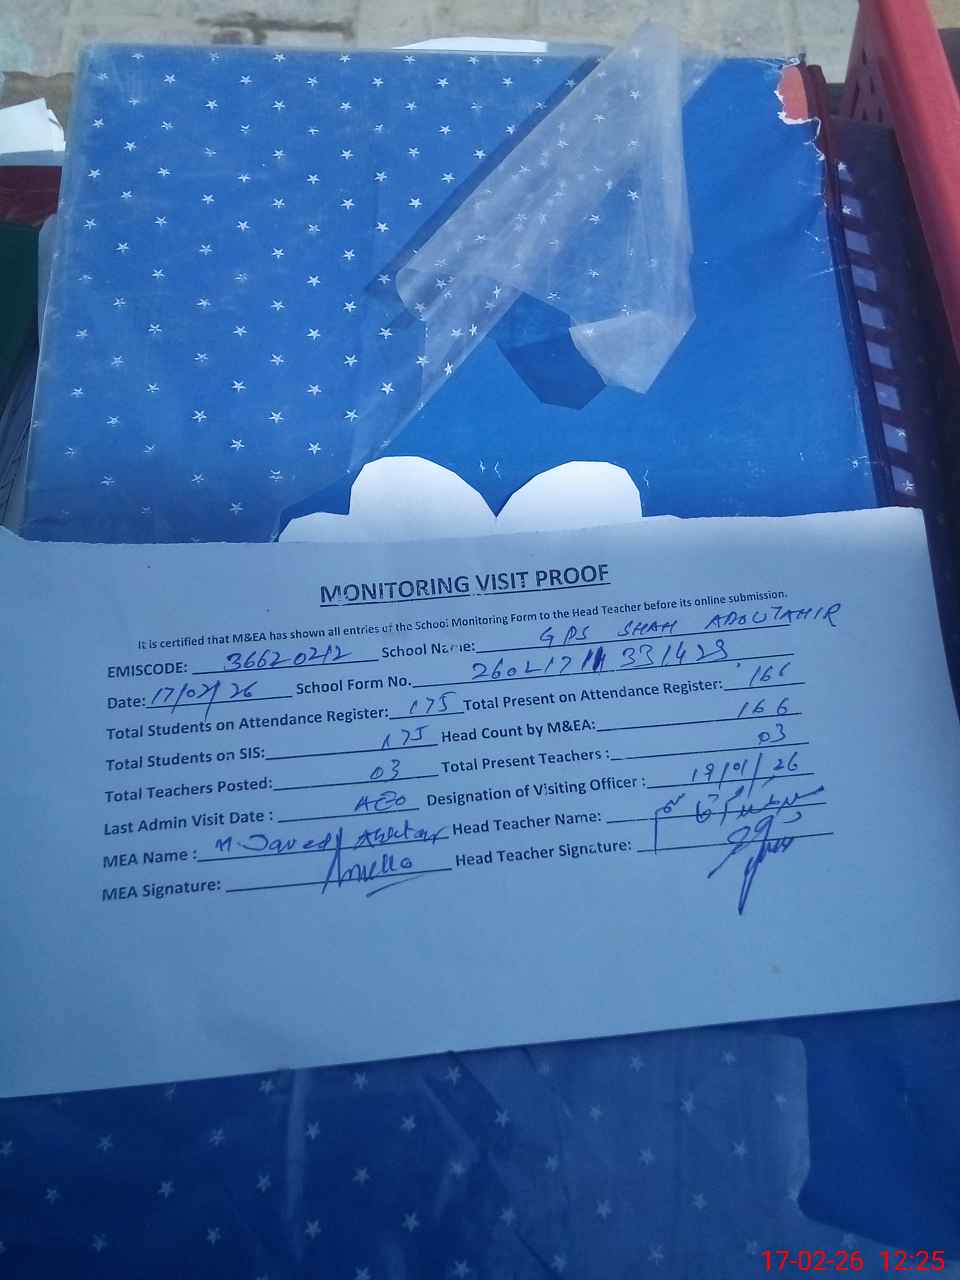 MONITORING VISIT PROOF
It is certified that M&EA has shown all entries of the School Monitoring Form to the Head Teacher before its online submission.
EMISCODE: 36620212 School Name: GPS SHAH ABDUTAHIR
Date: 17/02/26 School Form No. 331423
Total Students on Attendance Register: 175 Total Present on Attendance Register: 166
Total Students on SIS: 175 Head Count by M&EA: 166
Total Teachers Posted: 03 Total Present Teachers : 03
Last Admin Visit Date : AEO Designation of Visiting Officer : 19/01/26
MEA Name : M. Javed Akhtar Head Teacher Name:
MEA Signature: Head Teacher Signature:
17-02-26 12:25